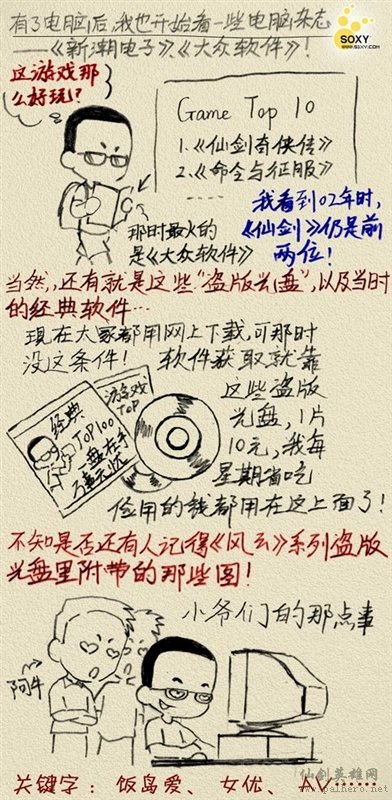 有了电脑后,我也开始看一些电脑杂志
——《新潮电子》《大众软件》!
SOXY
www.SOXY.com
这游戏那
么好玩?
Game Top 10
1.《仙剑奇侠传》
2.《命令与征服》
……
我看到02年时,
《仙剑》仍是前
两位!
那时最火的
是《大众软件》
当然,还有就是这些"盗版光盘",以及当时
的经典软件…
现在大家都用网上下载,可那时
没这条件! 软件获取就靠
这些盗版
光盘,1片
10元,我每
星期省吃
俭用的钱都用在这上面了!
游戏
TOP
经典
TOP100
一盘在手
万事无忧
不知是否还有人记得《风云》系列盗版
光盘里附带的那些图!
小爷们的那点事
阿牛
关键字: 饭岛爱、女优、AV……
仙剑英雄网
www.palhero.net